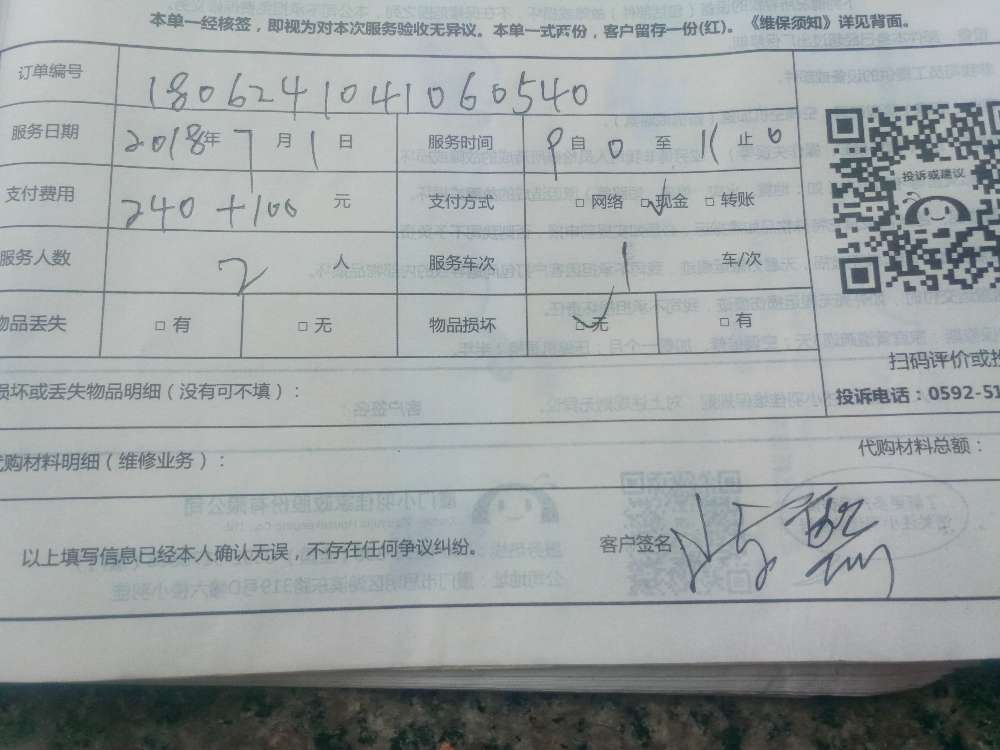 本单一经核签，即视为对本次服务验收无异议。本单一式两份，客户留存一份(红)。《维保须知》详见背面。
订单编号 1806241041060540
服务日期 2018年 7 月 1 日 服务时间 9 自 0 至 11 止 0
投诉或建议
支付费用 240+100 元 支付方式 □ 网络 ☑现金 □ 转账
服务人数 2 人 服务车次 1 车/次
物品丢失 □ 有 □ 无 物品损坏 ☑无 □ 有
扫码评价或投
损坏或丢失物品明细（没有可不填）：
投诉电话：0592-51
代购材料明细（维修业务）： 代购材料总额：
以上填写信息已经本人确认无误，不存在任何争议纠纷。 客户签名